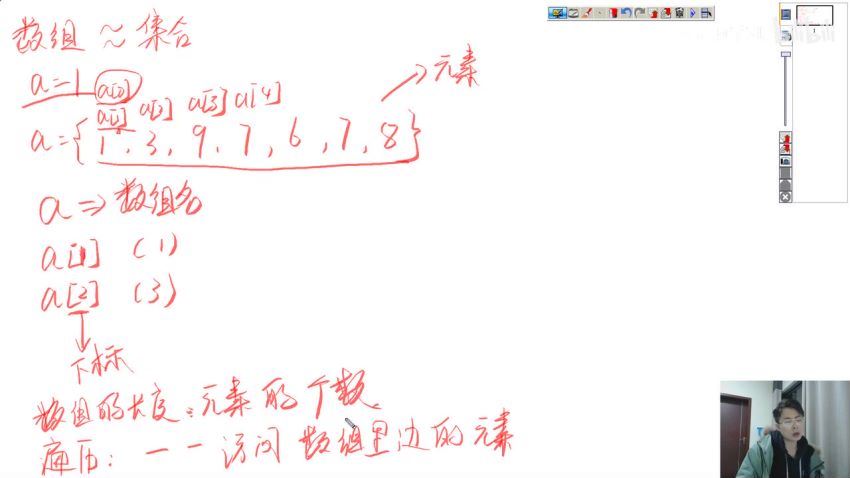 数组 ≈ 集合
a=1 a[0]
→元素
a[1] a[2] a[3] a[4]
a={1, 3, 9, 7, 6, 7, 8}
a⇒数组名
a[1] (1)
a[2] (3)
下标
数组的长度:元素的个数
遍历:一一访问数组里边的元素
bilibili